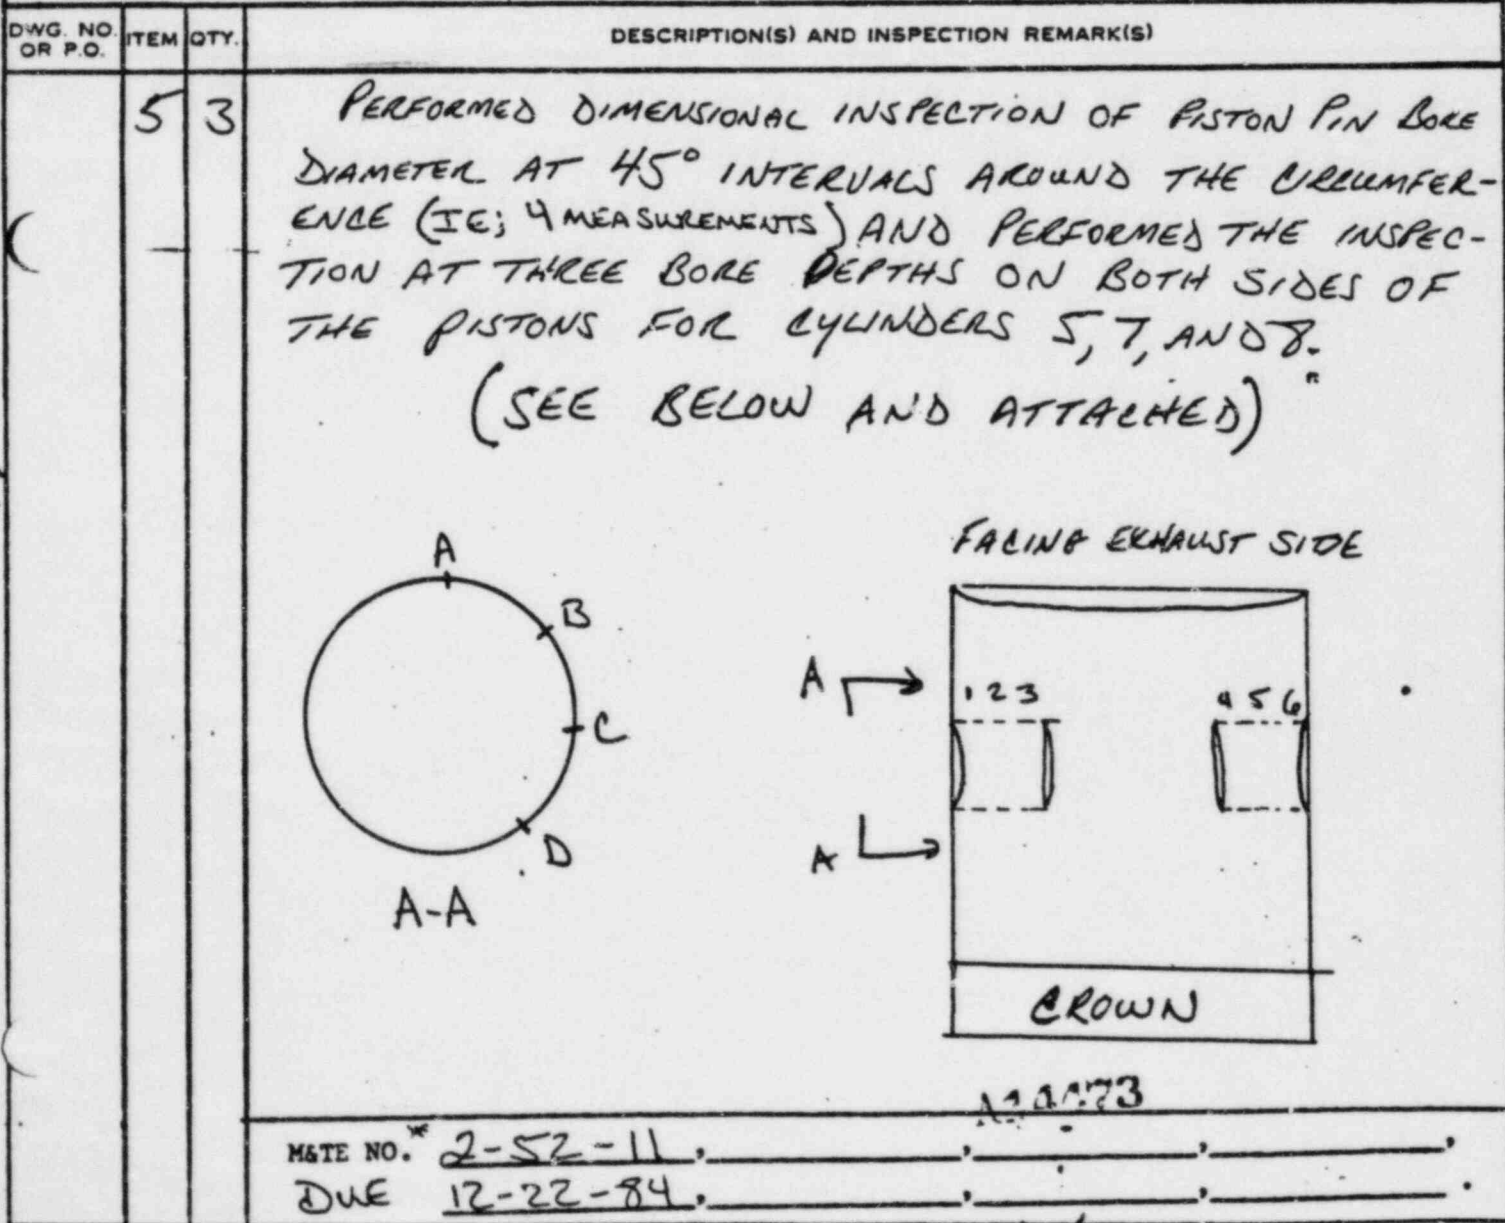 DWG. NO. OR P.O. ITEM QTY. DESCRIPTION(S) AND INSPECTION REMARK(S)
5 3 PERFORMED DIMENSIONAL INSPECTION OF PISTON PIN BORE
DIAMETER AT 45° INTERVALS AROUND THE CIRCUMFER-
ENCE (IE; 4 MEASUREMENTS) AND PERFORMED THE INSPEC-
TION AT THREE BORE DEPTHS ON BOTH SIDES OF
THE PISTONS FOR CYLINDERS 5, 7, AND 8.
(SEE BELOW AND ATTACHED)
FACING EXHAUST SIDE
A
B
C
D
A-A
A
1 2 3 4 5 6
A
CROWN
M&TE NO.* 2-52-11, , , ,
DUE 12-22-84, , , .